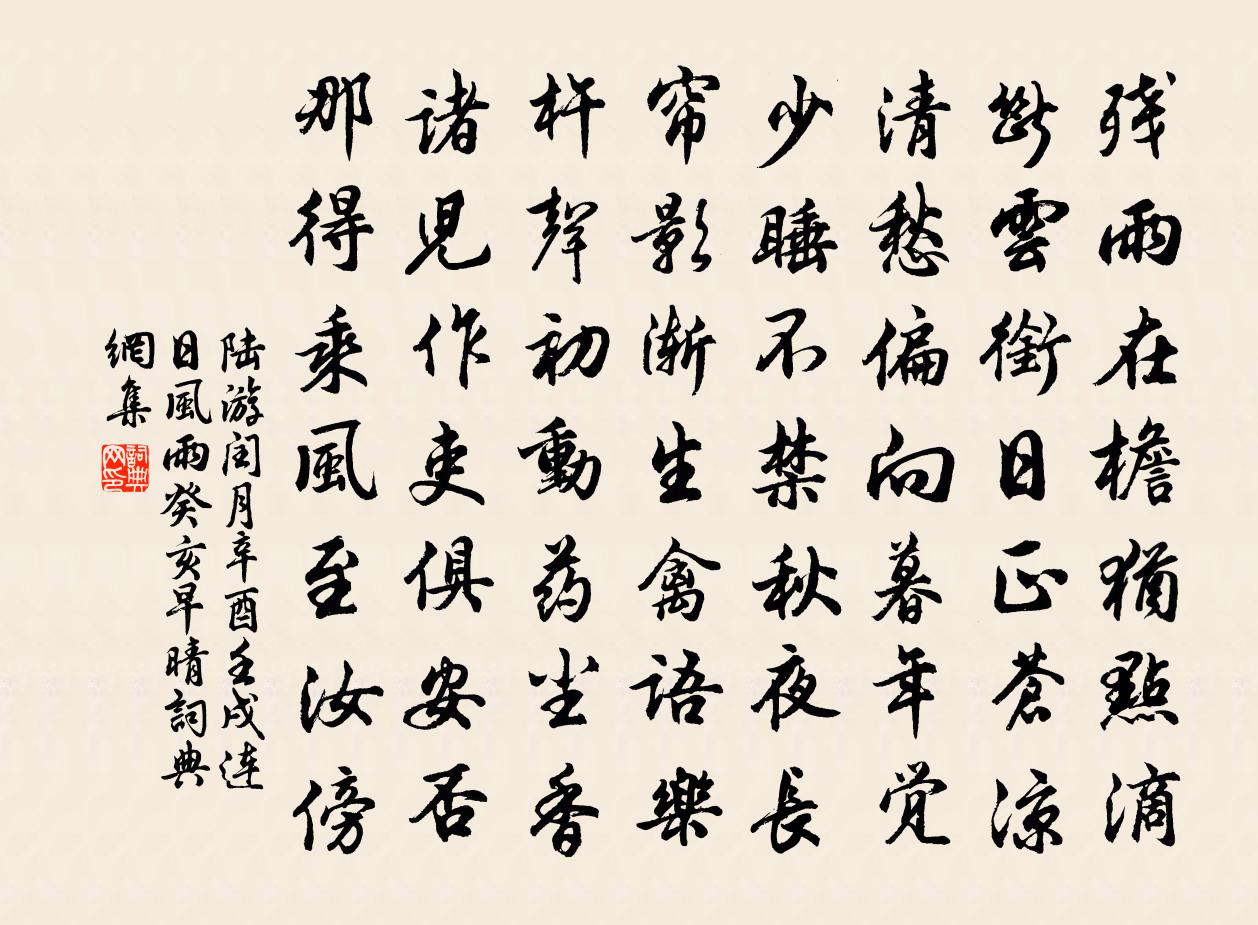 残雨在檐猶點滴
斷雲銜日正蒼涼
清愁偏向暮年覺
少睡不禁秋夜長
帘影漸生禽語樂
杵聲初動药尘香
諸児作吏俱安否
那得乘風至汝傍
陆游闰月辛酉壬戌连
日風雨癸亥早晴詞典
網集
詞典
网印